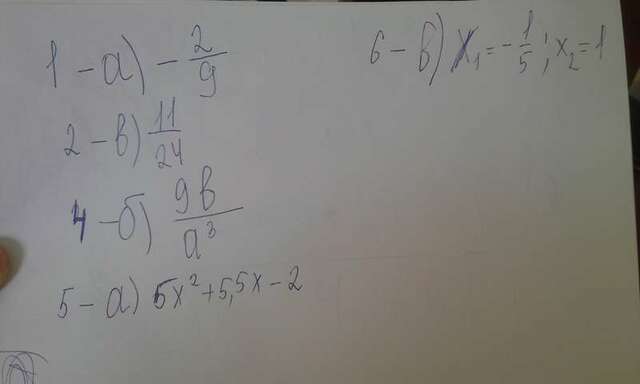 1 - а) - 2/9
2 - в) 11/24
4 - б) 9в/а³
5 - а) 5x² + 5,5x - 2
6 - в) x₁ = - 1/5; x₂ = 1